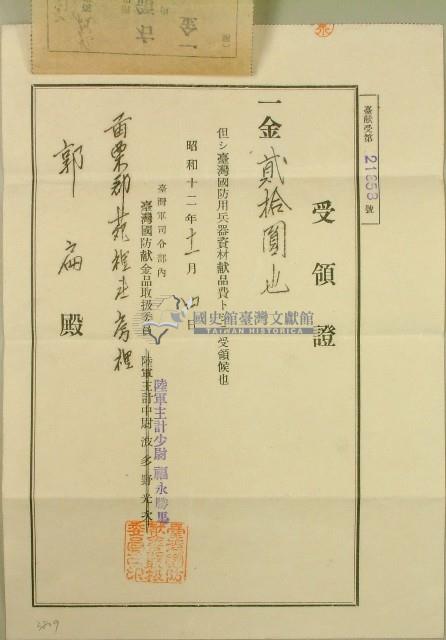 臺献受第 21858 號
受領證
一金 貳拾圓也
但シ臺灣國防用兵器資材献品費トシテ受領候也
昭和十二年十一月 日
臺灣軍司令部內
臺灣國防献金品取扱委員
陸軍主計中尉 波多野光次
陸軍主計少尉 福永勝馬
苗栗郡苑裡庄房裡
郭 殿
國史館臺灣文獻館
TAIWAN HISTORICA
一金